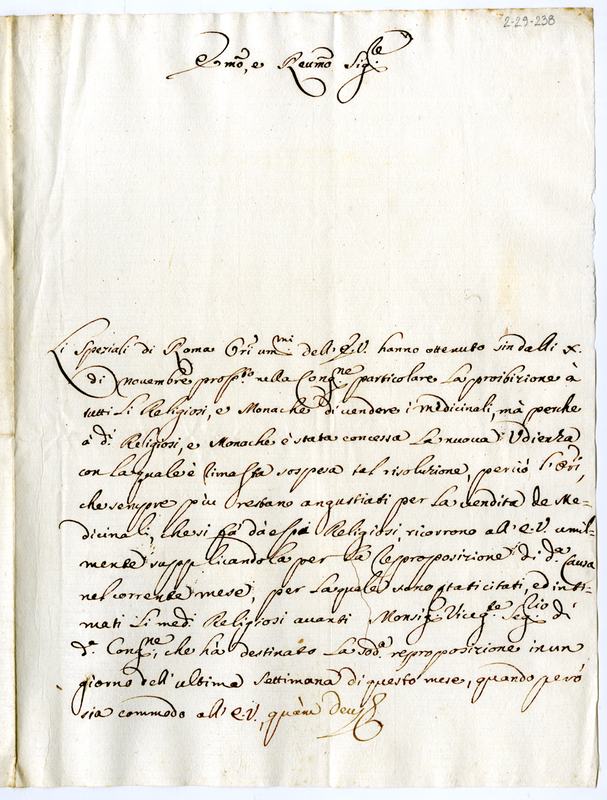 2-29-238
Emo, e Reumo Sigle
Li Speziali di Roma Ori ummi dell'E.V. hanno ottenuto sin dalli X.
di Novembre prosspto nella Congne particolare la proibizione à
tutti li Religiosi, e Monache di vendere i medicinali, mà perche
a di Religiosi, e Monache è stata concessa la nuova Udienza
con la quale è rimasta sospesa tal risoluzione, perciò l'Ori,
che sempre più restano angustiati per la vendita de Me-
dicinali, che si fà dà essi Religiosi, ricorrono all'E.V. umil-
mente supplicandola per la reproposizione di da Causa
nel corrente mese, per la quale sono stati citati, ed inti-
mati li medi Religiosi avanti Monsig Vicegte Seglio di
da Congne, che ha destinato la soda reproposizione in un
giorno dell'ultima Settimana di questo mese, quando però
sia commodo all'E.V., quam Deus